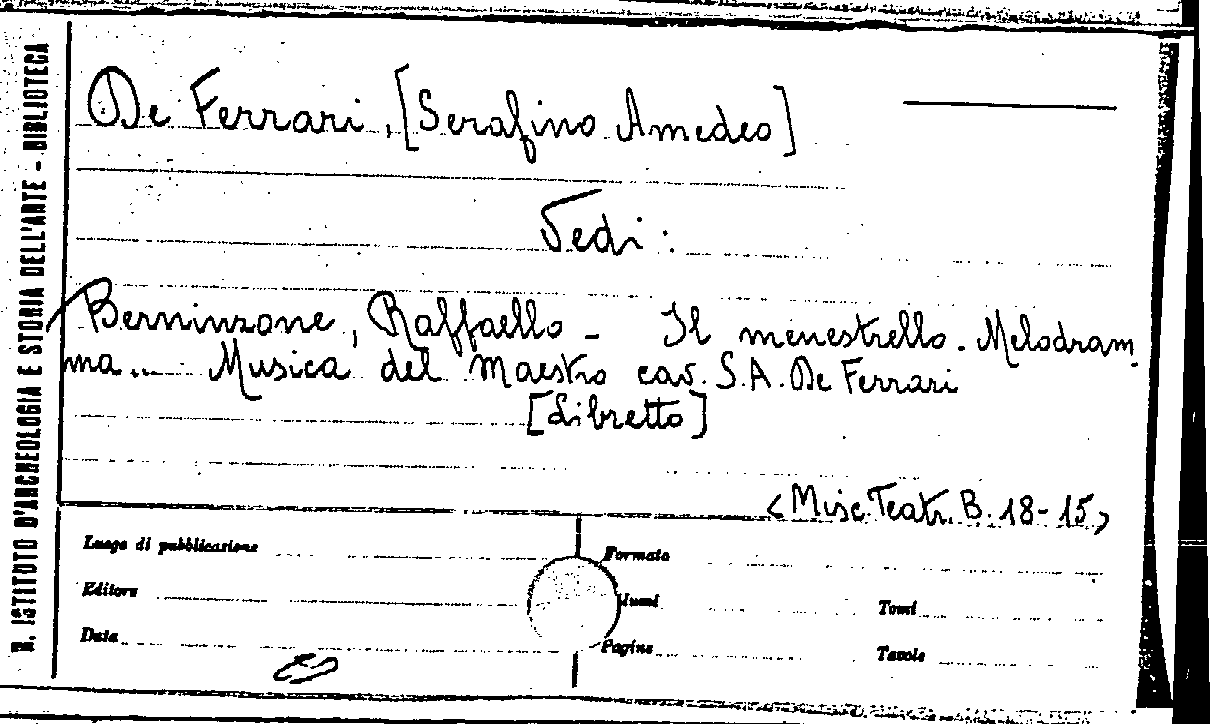 R. ISTITUTO D'ARCHEOLOGIA E STORIA DELL'ARTE - BIBLIOTECA
De Ferrari, [Serafino Amedeo]
Vedi:
Berninzone, Raffaello - Il menestrello. Melodram
ma... Musica del Maestro cav. S.A. De Ferrari
[Libretto]
<Misc. Teatr. B. 18-15>
Luogo di pubblicazione
Formato
Editore
lumi
Tomi
Data
Pagine
Tavole